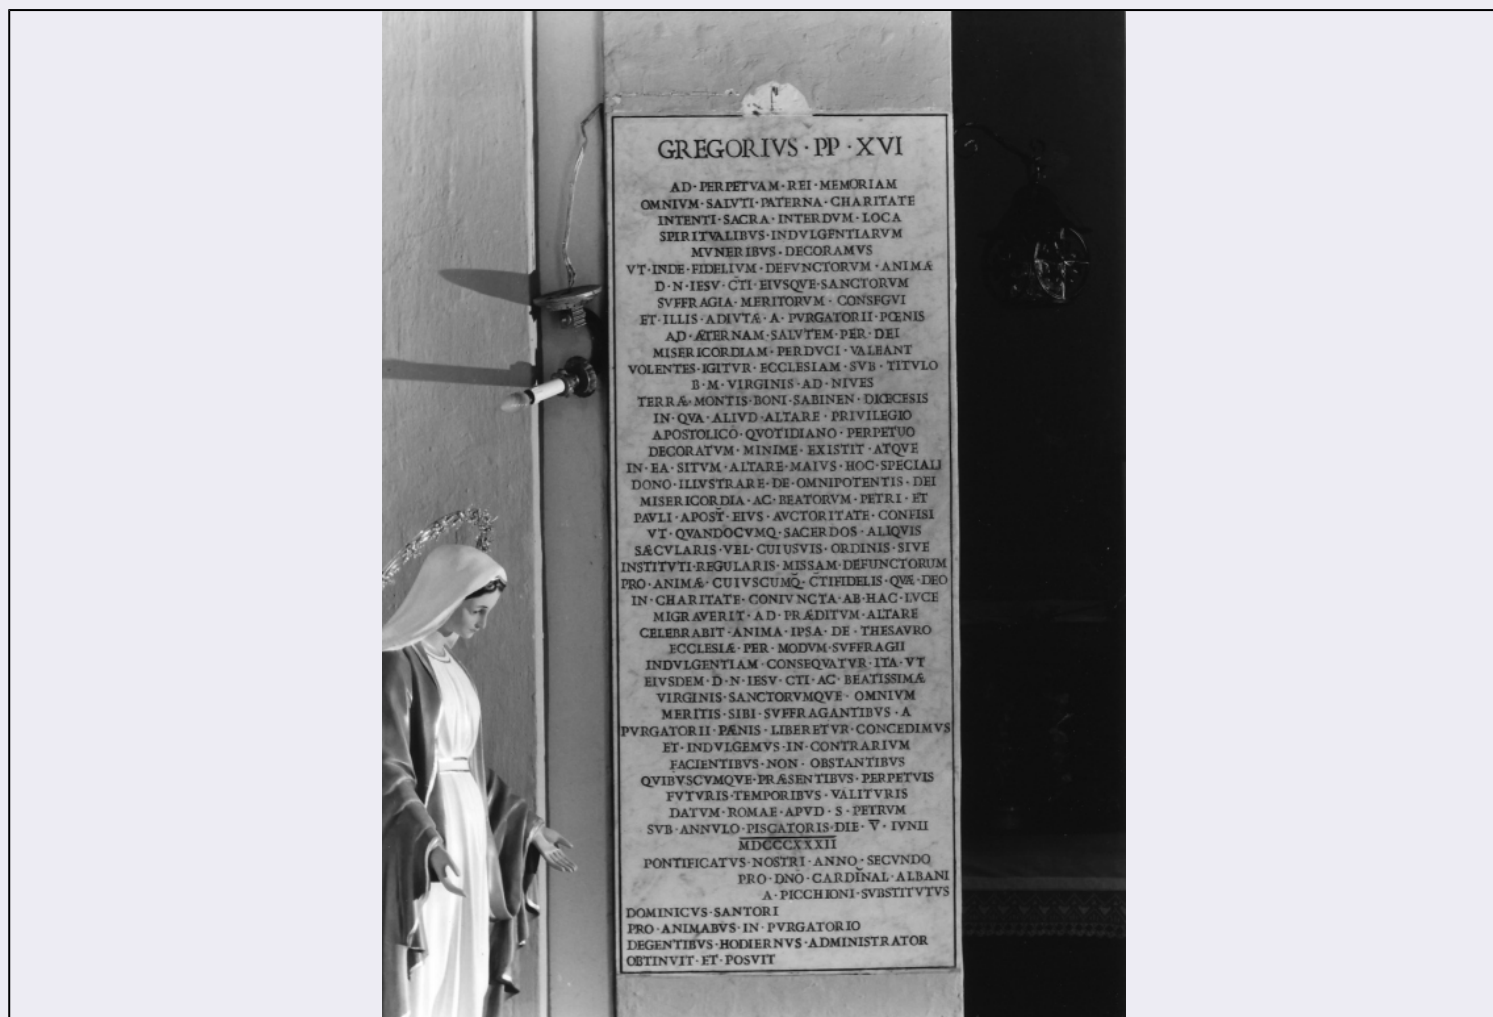 GREGORIVS · PP · XVI
AD · PERPETVAM · REI · MEMORIAM
OMNIVM · SALVTI · PATERNA · CHARITATE
INTENTI · SACRA · INTERDVM · LOCA
SPIRITVALIBVS · INDVLGENTIARVM
MVNERIBVS · DECORAMVS
VT · INDE · FIDELIVM · DEFVNCTORVM · ANIMÆ
D · N · IESV · CT̄I · EIVSQVE · SANCTORVM
SVFFRAGIA · MERITORVM · CONSEGVI
ET · ILLIS · ADIVTÆ · A · PVRGATORII · PŒNIS
AD · ÆTERNAM · SALVTEM · PER · DEI
MISERICORDIAM · PERDVCI · VALEANT
VOLENTES · IGITVR · ECCLESIAM · SVB · TITVLO
B · M · VIRGINIS · AD · NIVES
TERRÆ · MONTIS · BONI · SABINEN · DIŒCESIS
IN · QVA · ALIVD · ALTARE · PRIVILEGIO
APOSTOLICO · QVOTIDIANO · PERPETUO
DECORATVM · MINIME · EXISTIT · ATQVE
IN · EA · SITVM · ALTARE · MAIVS · HOC · SPECIALI
DONO · ILLVSTRARE · DE · OMNIPOTENTIS · DEI
MISERICORDIA · AC · BEATORVM · PETRI · ET
PAVLI · APOST̄ · EIVS · AVCTORITATE · CONFISI
VT · QVANDOCVMQ · SACERDOS · ALIQVIS
SÆCVLARIS · VEL · CUIUSVIS · ORDINIS · SIVE
INSTITVTI · REGULARIS · MISSAM · DEFUNCTORUM
PRO · ANIMÆ · CUIVSCUMQ̄ · CT̄IFIDELIS · QVÆ · DEO
IN · CHARITATE · CONIVNCTA · AB · HAC · LVCE
MIGRAVERIT · AD · PRÆDITVM · ALTARE
CELEBRABIT · ANIMA · IPSA · DE · THESAVRO
ECCLESIÆ · PER · MODVM · SVFFRAGII
INDVLGENTIAM · CONSEQVATVR · ITA · VT
EIVSDEM · D · N · IESV · CTI · AC · BEATISSIMÆ
VIRGINIS · SANCTORVMQVE · OMNIVM
MERITIS · SIBI · SVFFRAGANTIBVS · A
PVRGATORII · PÆNIS · LIBERETVR · CONCEDIMVS
ET · INDVLGEMVS · IN · CONTRARIVM
FACIENTIBVS · NON · OBSTANTIBVS
QVIBVSCVMQVE · PRÆSENTIBVS · PERPETVIS
FVTVRIS · TEMPORIBVS · VALITVRIS
DATVM · ROMAE · APVD · S · PETRVM
SVB · ANNVLO · PISCATORIS · DIE · V̄ · IVNII
MDCCCXXXII
PONTIFICATVS · NOSTRI · ANNO · SECVNDO
PRO · DNŌ · CARDĪNAL · ALBANI
A · PICCHIONI · SVBSTITVTVS
DOMINICVS · SANTORI
PRO · ANIMABVS · IN · PVRGATORIO
DEGENTIBVS · HODIERNVS · ADMINISTRATOR
OBTINVIT · ET · POSVIT